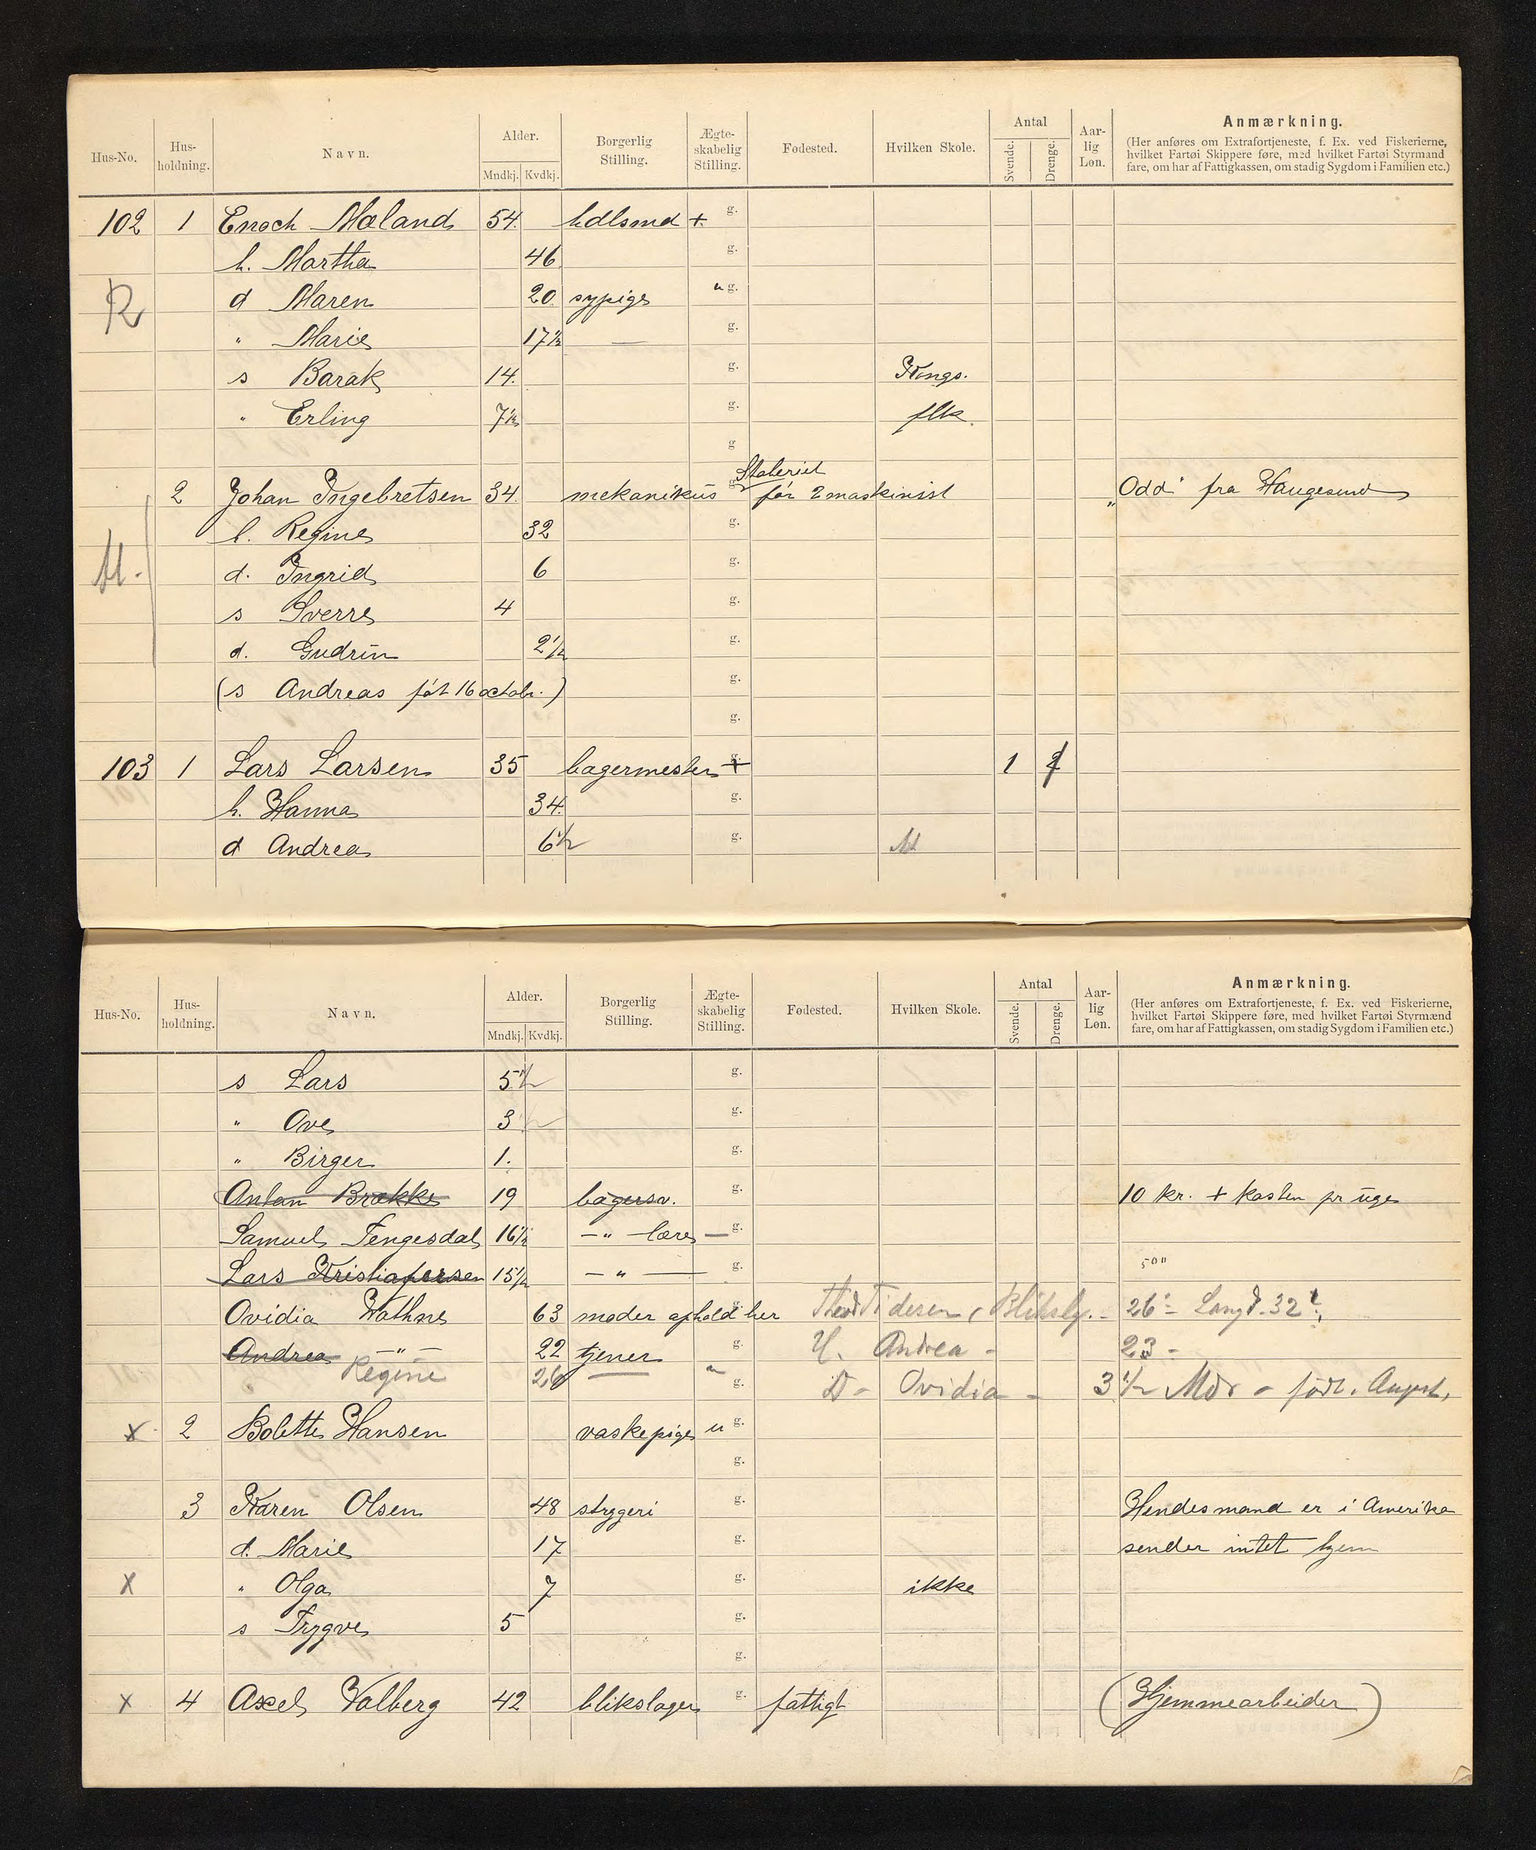 Hus-No. Hus-holdning. Navn. Alder. Mndkj. Kvdkj. Borgerlig Stilling. Ægte-skabelig Stilling. Fødested. Hvilken Skole. Antal Svende. Drenge. Aar-lig Løn. Anmærkning.
(Her anføres om Extrafortjeneste, f. Ex. ved Fiskerierne, hvilket Fartøi Skippere føre, med hvilket Fartøi Styrmand fare, om har af Fattigkassen, om stadig Sygdom i Familien etc.)
102 1 Enoch Maland 54. hdlsmd + g.
h. Martha 46. g.
R d Maren 20. sypige " g.
" Marie 17½ — g.
s Barak 14. g. Kongs.
" Erling 7½ g. flk.
g.
2 Johan Ingebretsen 34. mekanikus g. før 2 maskinist „Odd" fra Haugesund
h. Regine 32 g.
M. d. Ingrid 6 g.
s Sverre 4 g.
d. Gudrun 2½ g.
(s Andreas føt 16 octobr.) g.
g.
103 1 Lars Larsen 35 bagermester + g. 1
h. Hanna 34. g.
d Andrea 6½ g. M
Hus-No. Hus-holdning. Navn. Alder. Mndkj. Kvdkj. Borgerlig Stilling. Ægte-skabelig Stilling. Fødested. Hvilken Skole. Antal Svende. Drenge. Aar-lig Løn. Anmærkning.
(Her anføres om Extrafortjeneste, f. Ex. ved Fiskerierne, hvilket Fartøi Skippere føre, med hvilket Fartøi Styrmænd fare, om har af Fattigkassen, om stadig Sygdom i Familien etc.)
s Lars 5½ g.
" Ove 3½ g.
" Birger 1. g.
Anton Brekke 19 bagersv. g. 10 kr. + kosten pr uge
Samuel Tengesdal 16½ — " — lære — g.
Lars Kristiafersen 15½ — " — g. 50 "
Ovidia Wathne 63 moder ophold her Tidesen, Blikslg. - 26 - 32
Andrea — " — 22 tjener g. H. Andrea - 23 -
Regine 26 " g. D - Ovidia - 3½ Mdr - født. August.
x 2 Bolette Hansen vaskepige u g.
g.
3 Karen Olsen 48 strygeri g. Hendes mand er i Amerika
d. Marie 17 g. sender intet hjem
x " Olga 7 g. ikke
s Trygve 5 g.
g.
x 4 Axel Valberg 42 blikslager g. fattigt (Hjemmearbeider)